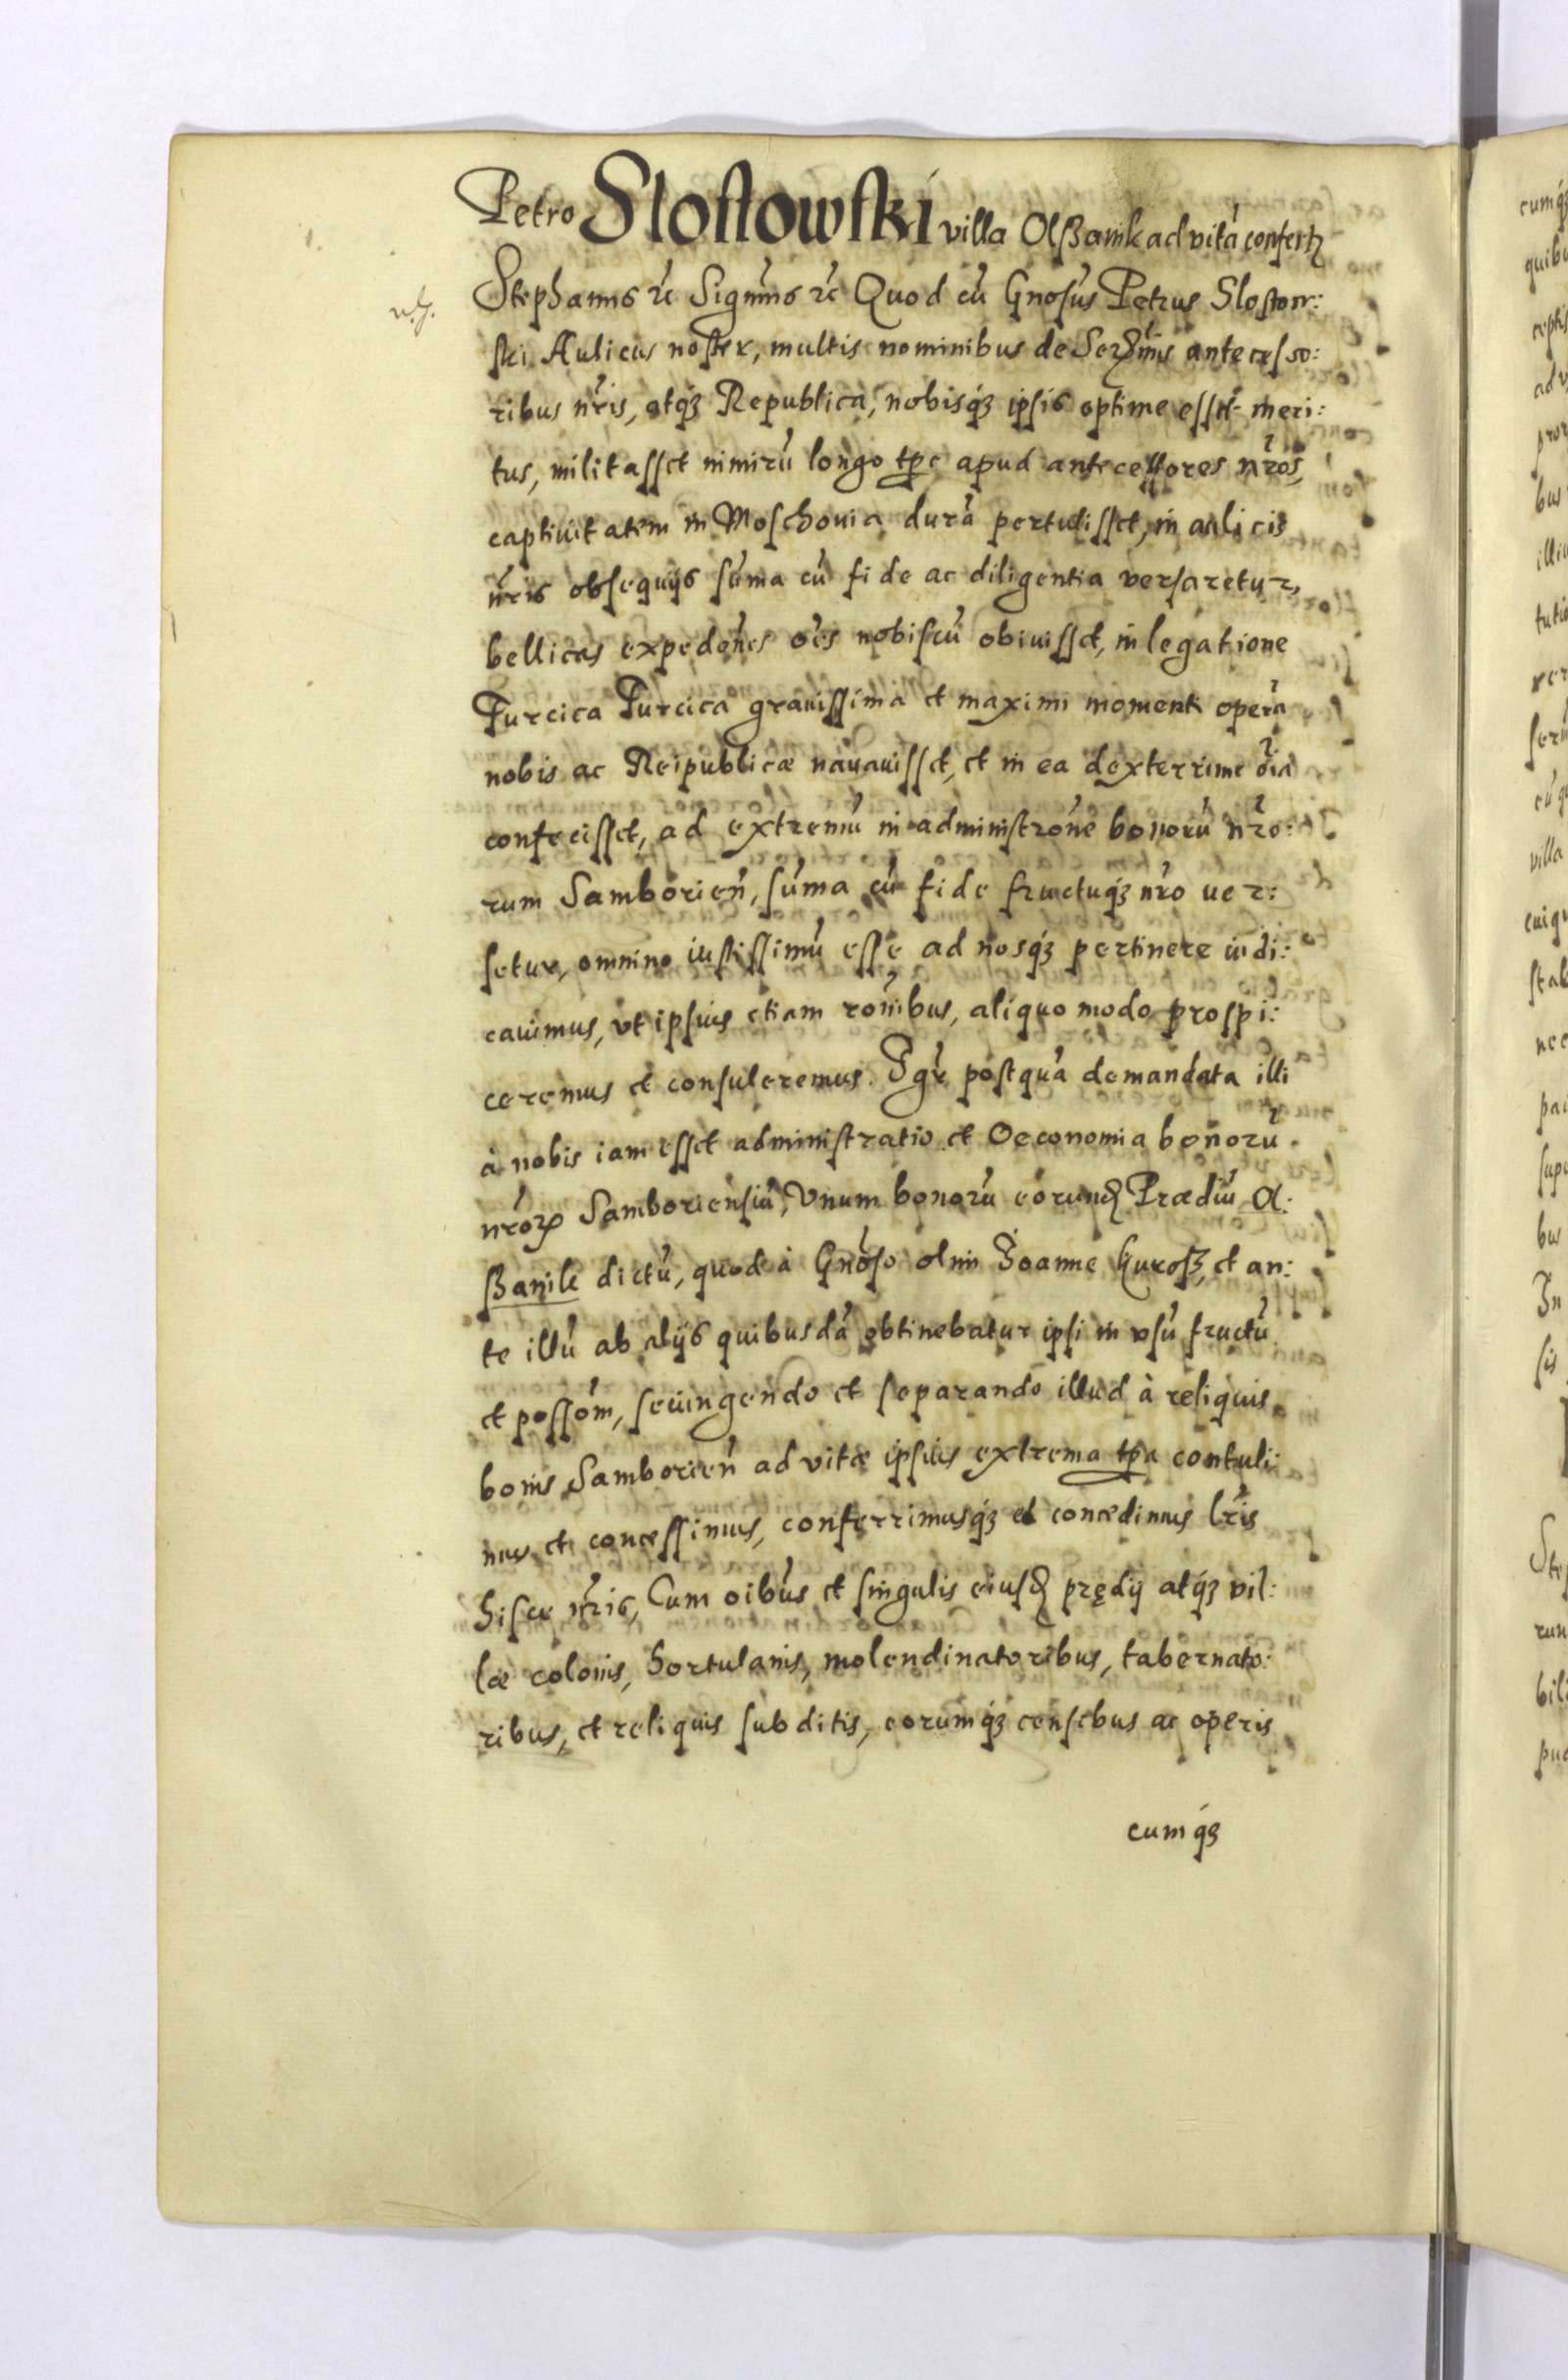 Petro Slostowski villa Olßanik ad vitã confertʒ
Stephanus rc Signũus rc Quod cũ Gnosũs Petrus Slostow:
ski Aulicus noster, multis nominibus de Serᵭmis antecesso:
ribus nr̃is, atqʒ Republica, nobisqʒ ipsis optime esset meri:
tus, militasset nimirũ longo tꝑe apud antecessores nr̃os,
captiuitatem in Moschouia durã pertulisset, in aulicis
nr̃is obsequijs sũma cũ fide ac diligentia versaretur,
bellicas expedoñes oẽs nobiscũ obiuisset, in legatione
Turcica Turcica grauissima et maximi momenti operã
nobis ac Reipublicæ nauauisset, et in ea dexterrime oĩa
confecisset, ad extremũ in administroñe bonorũ nr̃o:
rum Samborieñ, sũma cũ fide fructuqʒ nr̃o uer:
setur, omnino iustissimũ esse ad nosqʒ pertinere iudi:
cauimus, vt ipsius etiam roñibus, aliquo modo prospi:
ceremus et consuleremus. Igr̃ postquã demandata illi
à nobis iam esset administratio et Oeconomia bonorũ
nr̃oꝝ Samboriensiũ, Vnum bonorũ eorunᵭ Prædiũ Ol:
ßanik dictũ, quod à Gnõso olim Ioanne Kuroß, et an:
te illũ ab alijs quibusdã obtinebatur ipsi in vsũ fructũ
et possom̃, seiungendo et separando illud à reliquis
bonis Samborieñ ad vitæ ipsius extrema tꝑa contuli:
mus et concessimus, conferrimusqʒ et concedimus lr̃is
hisce nr̃is, Cum oibũs et singulis eiusᵭ prędij atqʒ vil:
læ colonis, hortulanis, molendinatoribus, tabernato:
ribus, et reliquis subditis, eorumqʒ censibus ac operis
cumqʒ